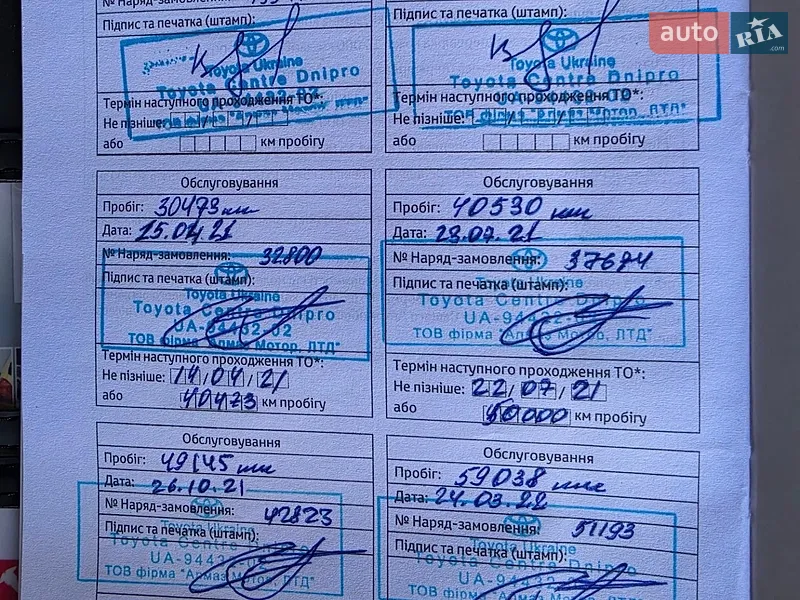 № Наряд-замовлення:
Підпис та печатка (штамп):
Toyota Ukraine
Toyota Centre Dnipro
Термін наступного проходження ТО*:
Не пізніше:
або км пробігу
Підпис та печатка (штамп):
Toyota Ukraine
Toyota Centre Dnipro
Термін наступного проходження ТО*:
Не пізніше:
або км пробігу
auto RIA .com
Обслуговування
Пробіг: 30473 км
Дата: 15.04.21
№ Наряд-замовлення: 32800
Підпис та печатка (штамп):
Toyota Ukraine
Toyota Centre Dnipro
UA-94432-02
ТОВ фірма "Алмаз Мотор, ЛТД"
Термін наступного проходження ТО*:
Не пізніше: 14/04/21
або 40473 км пробігу
Обслуговування
Пробіг: 40530 км
Дата: 23.07.21
№ Наряд-замовлення: 37674
Підпис та печатка (штамп):
Toyota Ukraine
Toyota Centre Dnipro
UA-94432
ТОВ фірма "Алмаз Мотор, ЛТД"
Термін наступного проходження ТО*:
Не пізніше: 22/07/21
або 50000 км пробігу
Обслуговування
Пробіг: 49145 км
Дата: 26.10.21
№ Наряд-замовлення: 42823
Підпис та печатка (штамп):
Toyota Ukraine
Toyota Centre Dnipro
UA-9443
ТОВ фірма "Алмаз Мотор, ЛТД"
Обслуговування
Пробіг: 59038 км
Дата: 24.03.22
№ Наряд-замовлення: 51193
Підпис та печатка (штамп):
Toyota Ukraine
Toyota Centre Dnipro
UA-944
ТОВ фірма